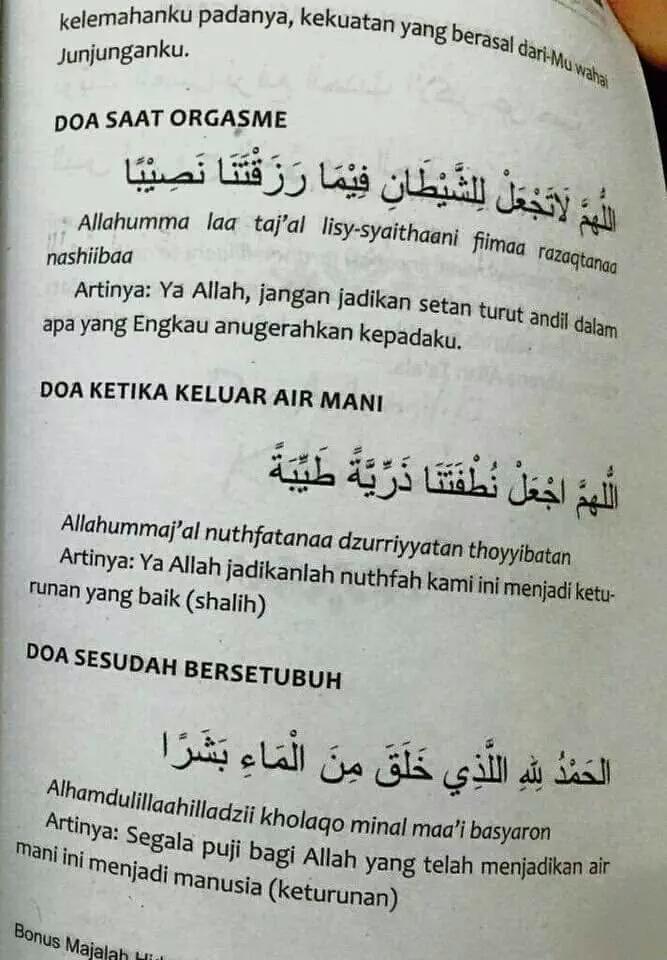 kelemahanku padanya, kekuatan yang berasal dari-Mu wahai
Junjunganku.
DOA SAAT ORGASME
اللَّهُمَّ لَاتَجْعَلْ لِلشَّيْطَانِ فِيْمَا رَزَقْتَنَا نَصِيْبًا
Allahumma laa taj'al lisy-syaithaani fiimaa razaqtanaa
nashiibaa
Artinya: Ya Allah, jangan jadikan setan turut andil dalam
apa yang Engkau anugerahkan kepadaku.
DOA KETIKA KELUAR AIR MANI
اللَّهُمَّ اجْعَلْ نُطْفَتَنَا ذَرِّيَّةً طَيِّبَةً
Allahummaj'al nuthfatanaa dzurriyyatan thoyyibatan
Artinya: Ya Allah jadikanlah nuthfah kami ini menjadi ketu-
runan yang baik (shalih)
DOA SESUDAH BERSETUBUH
الحَمْدُ لِلهِ اللَّذِي خَلَقَ مِنَ الْمَاءِ بَشَرًا
Alhamdulillaahilladzii kholaqo minal maa'i basyaron
Artinya: Segala puji bagi Allah yang telah menjadikan air
mani ini menjadi manusia (keturunan)
Bonus Majalah